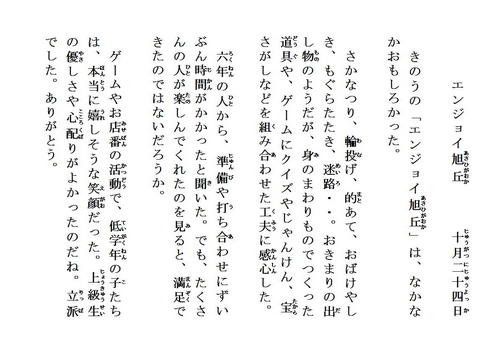 エンジョイ旭丘　　十月二十四日
きのうの「エンジョイ旭丘」は、なかな
かおもしろかった。
さかなつり、輪投げ、的あて、おばけやし
き、もぐらたたき、迷路・・。おきまりの出
し物のようだが、身のまわりものでつくった
道具や、ゲームにクイズやじゃんけん、宝
さがしなどを組み合わせた工夫に感心した。
六年の人から、準備や打ち合わせにずい
ぶん時間がかかったと聞いた。でも、たくさ
んの人が楽しんでくれたのを見ると、満足で
きたのではないだろうか。
ゲームやお店番の活動で、低学年の子たち
は、本当に嬉しそうな笑顔だった。上級生
の優しさや心配りがよかったのだね。立派
でした。ありがとう。